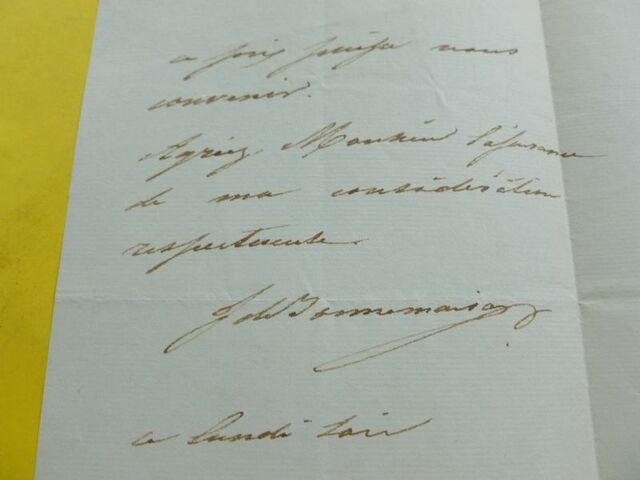 a prix puisse vous
convenir.
Agréez, Monsieur l'assurance
de ma considération
respectueuse.
J de Bonnemaison
ce lundi soir